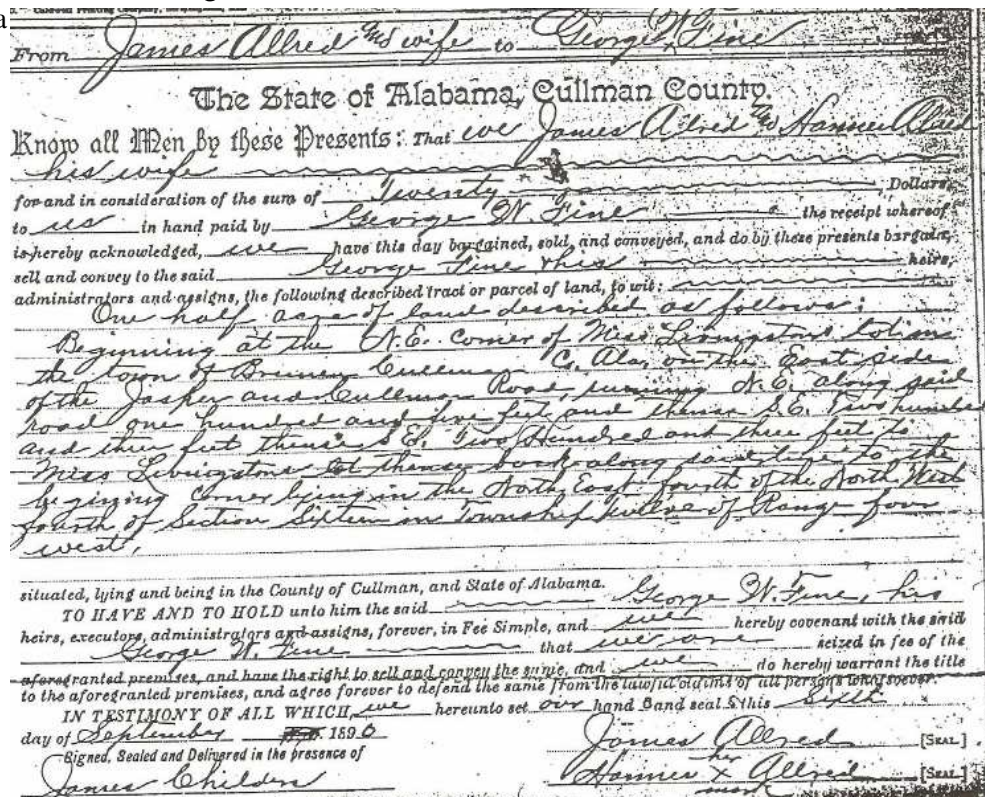 a
From James Allred and wife to George W Fine
The State of Alabama, Cullman County.
Know all Men by these Presents: That we James Allred and Hanner Allred
his wife
for and in consideration of the sum of Twenty Dollars,
to us in hand paid by George W. Fine the receipt whereof
is hereby acknowledged, we have this day bargained, sold, and conveyed, and do by these presents bargain,
sell and convey to the said George Fine & his heirs,
administrators and assigns, the following described tract or parcel of land, to wit:
One half acre of land described as follows:
Beginning at the N.E. Corner of Miss Livingstons lot in
the town of Bremen Cullman Co. Ala, on the East side
of the Jasper and Cullman Road, running N.E. along said
road one hundred and five feet, and thense S.E. Two hundred
and three feet thense S.E. Two Hundred and three feet to
Miss Livingstons lot thense back along said line to the
begining corner lying in the North East fourth of the North West
fourth of Section Sixteen in Township Twelve of Range four
west,
situated, lying and being in the County of Cullman, and State of Alabama.
TO HAVE AND TO HOLD unto him the said George W. Fine, his
heirs, executors, administrators and assigns, forever, in Fee Simple, and we hereby covenant with the said
George W. Fine that we are seized in fee of the
aforegranted premises, and have the right to sell and convey the same, and we do hereby warrant the title
to the aforegranted premises, and agree forever to defend the same from the lawful claims of all persons whosoever.
IN TESTIMONY OF ALL WHICH, we hereunto set our hand s and seal s this Sixth
day of September 1896
Signed, Sealed and Delivered in the presence of
James Allred [SEAL]
James Childers
Hanner her x mark Allred [SEAL]